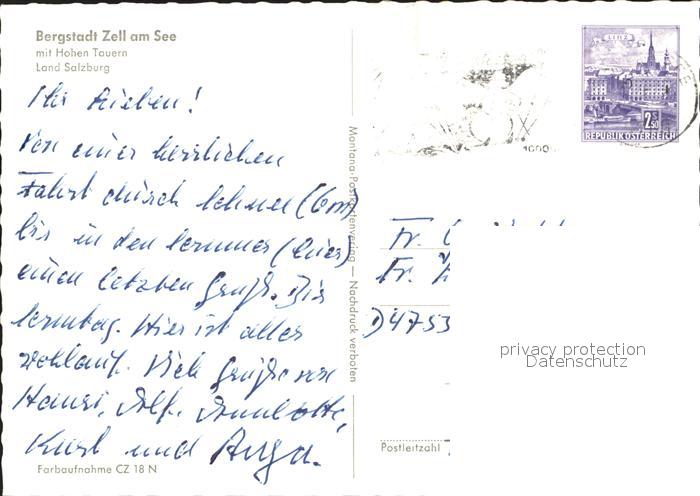 Bergstadt Zell am See
mit Hohen Tauern
Land Salzburg
Ihr Lieben!
Von einer herrlichen
Fahrt durch Schnee (6m)
bis in den Sommer (hier)
einen letzten Gruß. Bis
Sonntag. Hier ist alles
wohlauf. Viele Grüße von
Hansi, Alf, Annlotte,
Kurt und
Farbaufnahme CZ 18 N
Montana-Postkartenverlag — Nachdruck verboten
LINZ
2.50
REPUBLIK ÖSTERREICH
Fr.
Fr.
D 4753
privacy protection
Datenschutz
Postleitzahl